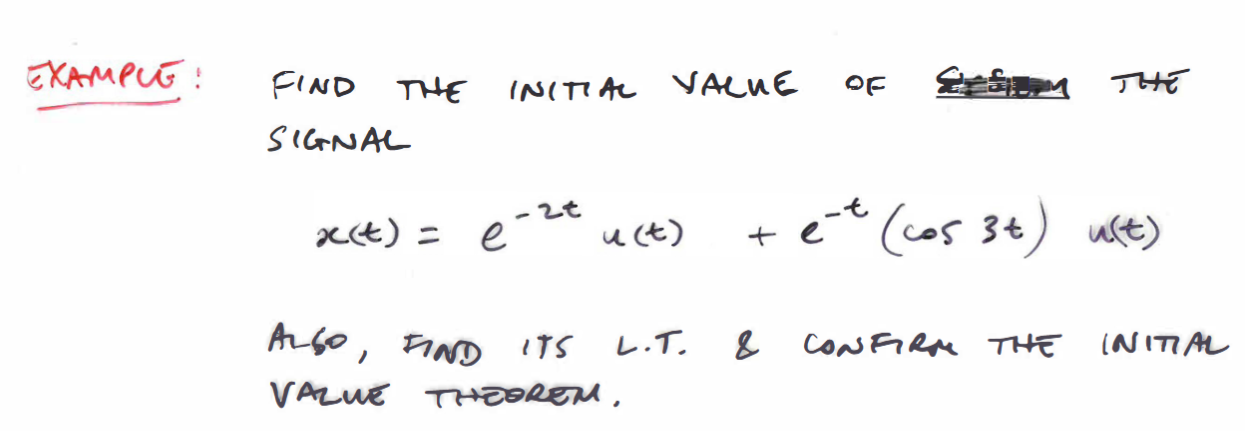 EXAMPLE: FIND THE INITIAL VALUE OF THE
SIGNAL
x(t) = e^{-2t} u(t) + e^{-t} (cos 3t) u(t)
ALSO, FIND ITS L.T. & CONFIRM THE INITIAL
VALUE THEOREM.